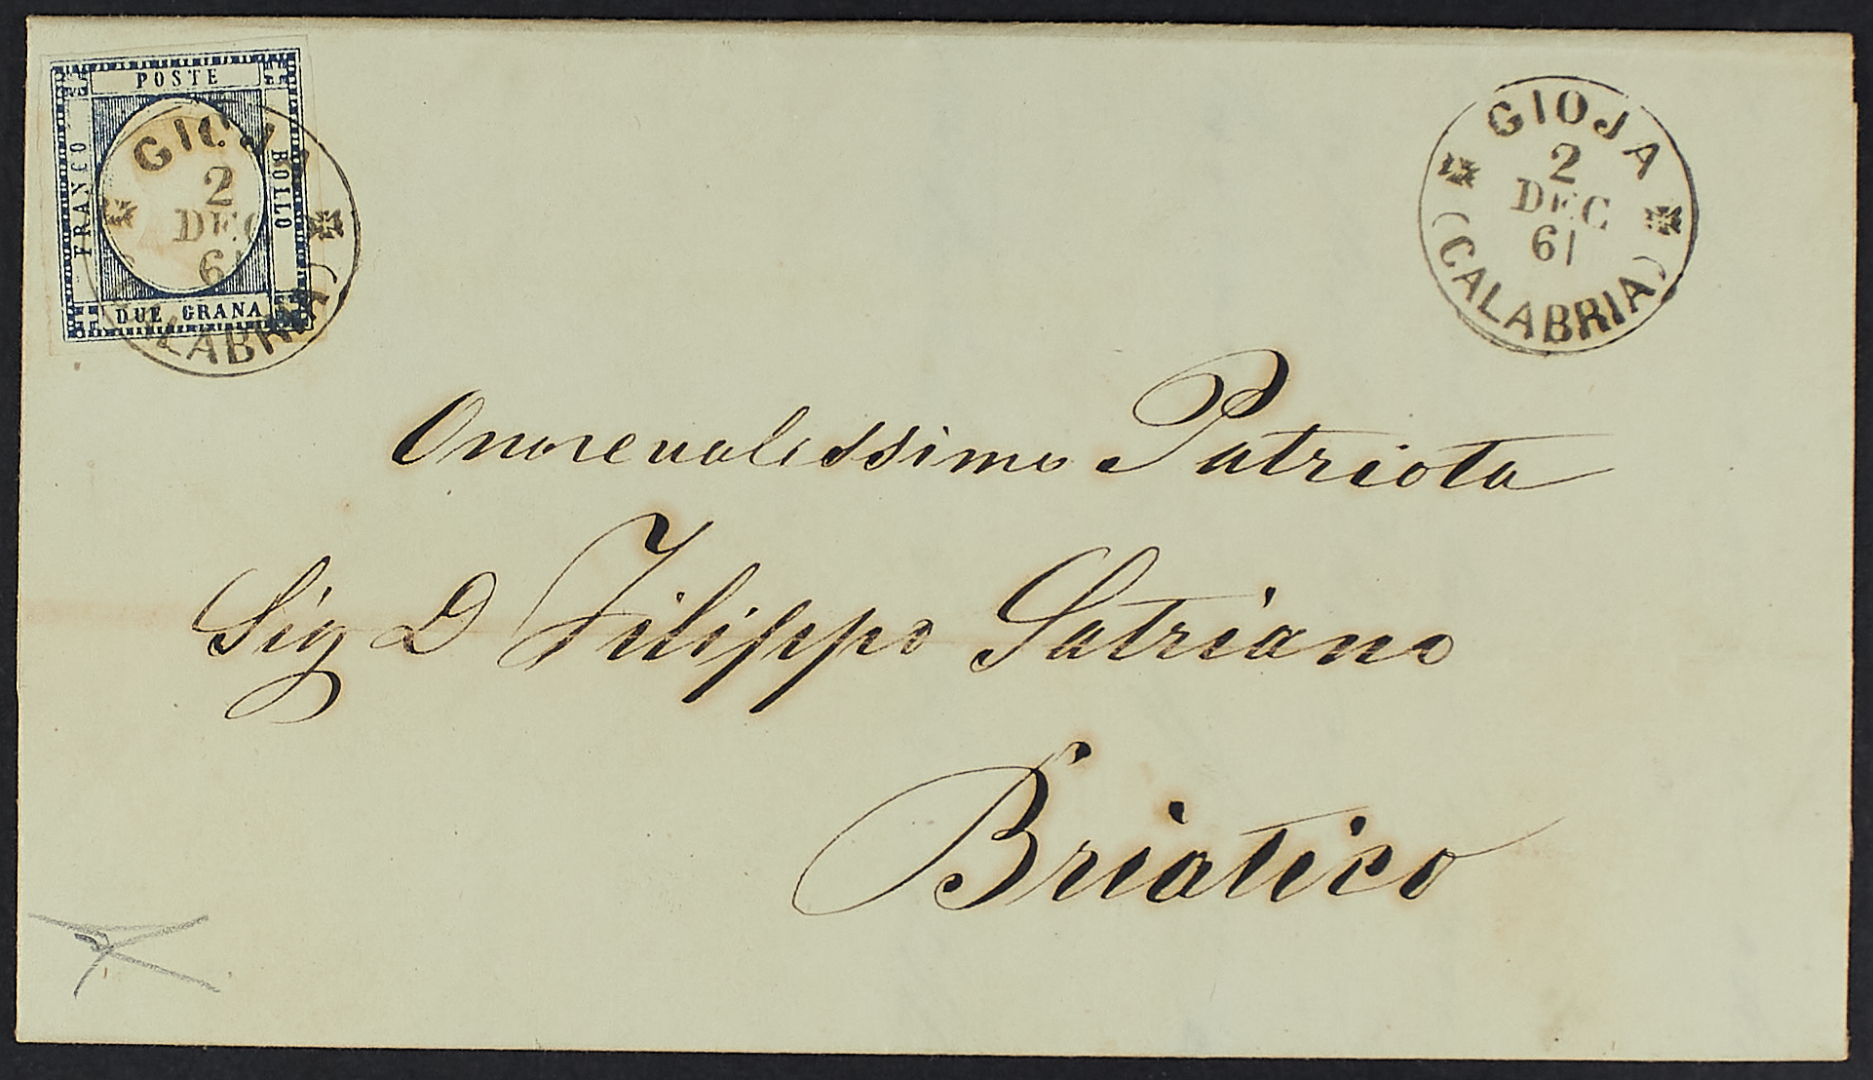 POSTE
FRANCO
BOLLO
DUE GRANA
GIOJA
2
DEC
61
(CALABRIA)
GIOJA
2
DEC
61
(CALABRIA)
Onorevolissimo Patriota
Sig D Filippo Satriano
Briatico